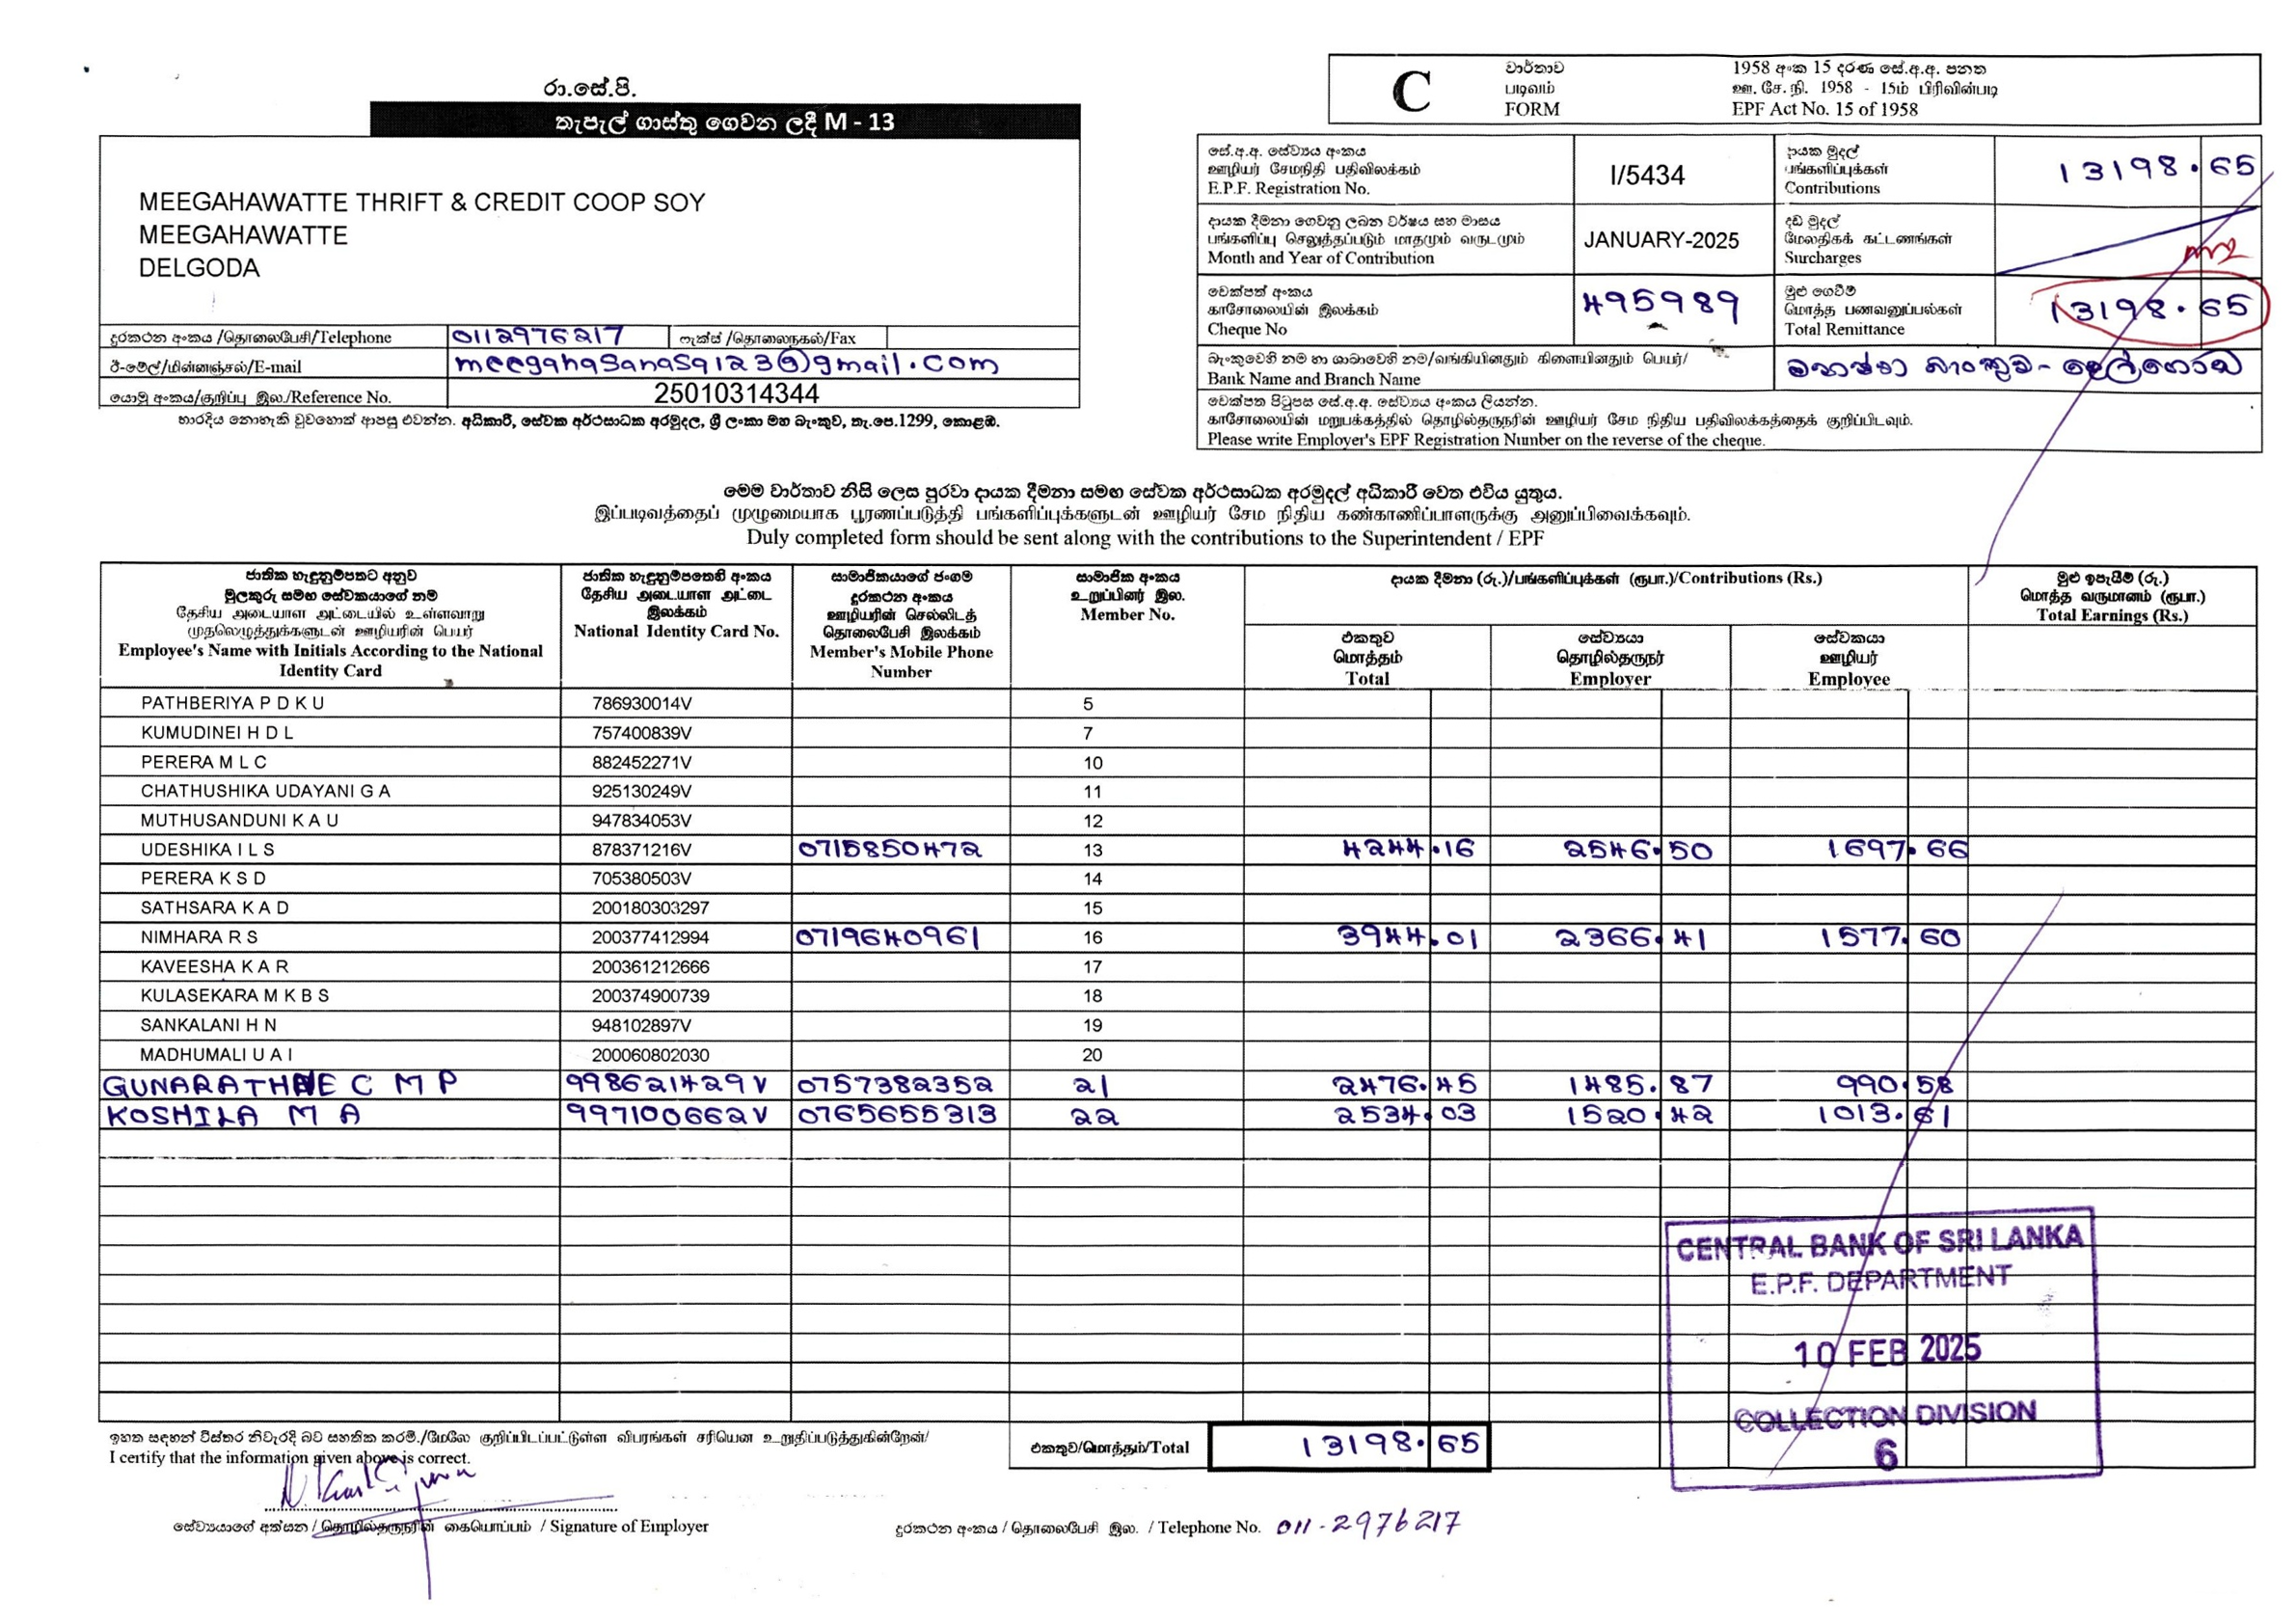 රා.සේ.පි.
තැපැල් ගාස්තු ගෙවන ලදී M - 13
MEEGAHAWATTE THRIFT & CREDIT COOP SOY
MEEGAHAWATTE
DELGODA
දුරකථන අංකය /தொலைபேசி/Telephone 0112976217 ෆැක්ස් /தொலைநகல்/Fax
ඊ-මේල්/மின்னஞ்சல்/E-mail meegahasanasa123@gmail.com
යොමු අංකය/குறிப்பு இல./Reference No. 25010314344
භාරදිය නොහැකි වුවහොත් ආපසු එවන්න. අධිකාරී, සේවක අර්ථසාධක අරමුදල, ශ්‍රී ලංකා මහ බැංකුව, තැ.පෙ.1299, කොළඹ.
C
වාර්තාව 1958 අංක 15 දරණ සේ.අ.අ. පනත
படிவம் ஊ. சே. நி. 1958 - 15ம் பிரிவின்படி
FORM EPF Act No. 15 of 1958
සේ.අ.අ. සේව්‍යය අංකය
ஊழியர் சேமநிதி பதிவிலக்கம்
E.P.F. Registration No.
I/5434
දායක මුදල්
பங்களிப்புக்கள்
Contributions
13198.65
දායක දීමනා ගෙවනු ලබන වර්ෂය සහ මාසය
பங்களிப்பு செலுத்தப்படும் மாதமும் வருடமும்
Month and Year of Contribution
JANUARY-2025
දඩ මුදල්
மேலதிகக் கட்டணங்கள்
Surcharges
චෙක්පත් අංකය
காசோலையின் இலக்கம்
Cheque No
495989
මුළු ගෙවීම්
மொத்த பணவனுப்பல்கள்
Total Remittance
13198.65
බැංකුවෙහි නම හා ශාඛාවෙහි නම/வங்கியினதும் கிளையினதும் பெயர்/
Bank Name and Branch Name
බැංකුව - දෙල්ගොඩ
චෙක්පත පිටුපස සේ.අ.අ. සේව්‍යය අංකය ලියන්න.
காசோலையின் மறுபக்கத்தில் தொழில்தருநரின் ஊழியர் சேம நிதிய பதிவிலக்கத்தைக் குறிப்பிடவும்.
Please write Employer's EPF Registration Number on the reverse of the cheque.
මෙම වාර්තාව නිසි ලෙස පුරවා දායක දීමනා සමඟ සේවක අර්ථසාධක අරමුදල් අධිකාරී වෙත එවිය යුතුය.
இப்படிவத்தைப் முழுமையாக பூரணப்படுத்தி பங்களிப்புக்களுடன் ஊழியர் சேம நிதிய கண்காணிப்பாளருக்கு அனுப்பிவைக்கவும்.
Duly completed form should be sent along with the contributions to the Superintendent / EPF
ජාතික හැඳුනුම්පතට අනුව
මුලකුරු සමඟ සේවකයාගේ නම
தேசிய அடையாள அட்டையில் உள்ளவாறு
முதலெழுத்துக்களுடன் ஊழியரின் பெயர்
Employee's Name with Initials According to the National
Identity Card
ජාතික හැඳුනුම්පතෙහි අංකය
தேசிய அடையாள அட்டை
இலக்கம்
National Identity Card No.
සාමාජිකයාගේ ජංගම
දුරකථන අංකය
ஊழியரின் செல்லிடத்
தொலைபேசி இலக்கம்
Member's Mobile Phone
Number
සාමාජික අංකය
உறுப்பினர் இல.
Member No.
දායක දීමනා (රු.)/பங்களிப்புக்கள் (ரூபா.)/Contributions (Rs.)
එකතුව
மொத்தம்
Total
සේව්‍යයා
தொழில்தருநர்
Employer
සේවකයා
ஊழியர்
Employee
මුළු ඉපැයීම් (රු.)
மொத்த வருமானம் (ரூபா.)
Total Earnings (Rs.)
PATHBERIYA P D K U 786930014V 5
KUMUDINEI H D L 757400839V 7
PERERA M L C 882452271V 10
CHATHUSHIKA UDAYANI G A 925130249V 11
MUTHUSANDUNI K A U 947834053V 12
UDESHIKA I L S 878371216V 0715850472 13 4244.16 2546.50 1697.66
PERERA K S D 705380503V 14
SATHSARA K A D 200180303297 15
NIMHARA R S 200377412994 0719640961 16 3944.01 2366.41 1577.60
KAVEESHA K A R 200361212666 17
KULASEKARA M K B S 200374900739 18
SANKALANI H N 948102897V 19
MADHUMALI U A I 200060802030 20
GUNARATHNE C M P 998621429V 0757382352 21 2476.45 1485.87 990.58
KOSHILA M A 997100662V 0765655313 22 2534.03 1520.42 1013.61
CENTRAL BANK OF SRI LANKA
E.P.F. DEPARTMENT
10 FEB 2025
COLLECTION DIVISION
6
ඉහත සඳහන් විස්තර නිවැරදි බව සහතික කරමි./மேலே குறிப்பிடப்பட்டுள்ள விபரங்கள் சரியென உறுதிப்படுத்துகின்றேன்/
I certify that the information given above is correct.
එකතුව/மொத்தம்/Total 13198.65
සේව්‍යයාගේ අත්සන / தொழில்தருநரின் கையொப்பம் / Signature of Employer
දුරකථන අංකය / தொலைபேசி இல. / Telephone No. 011-2976217